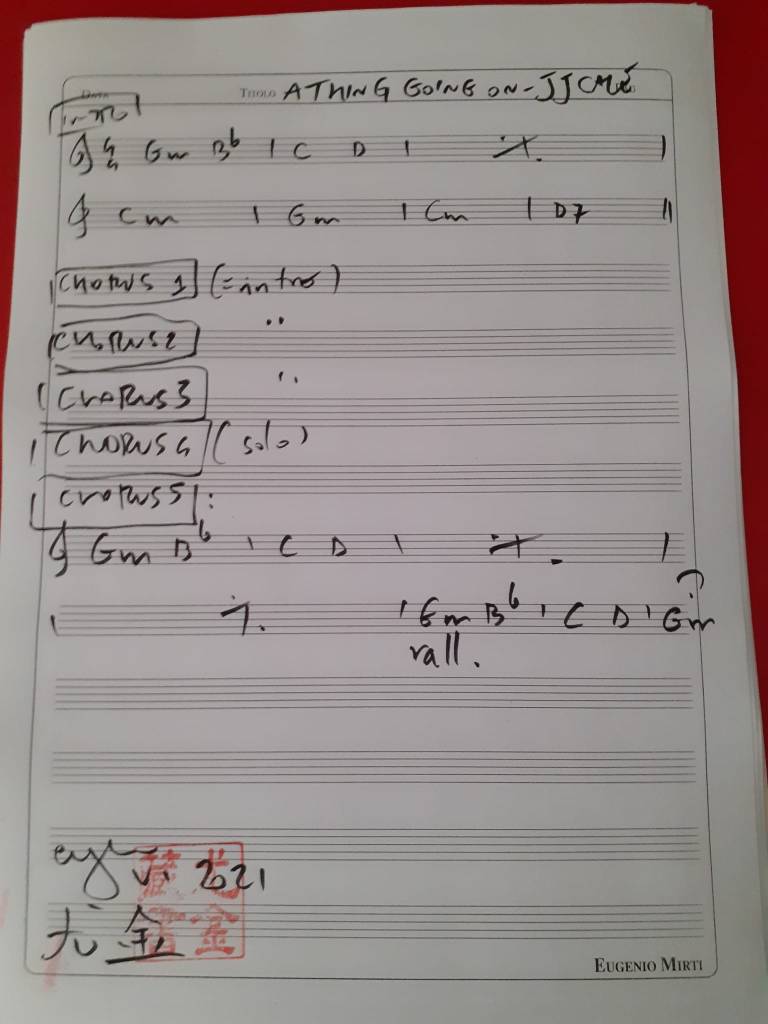 DATA TITOLO A THING GOING ON - JJ CALE
intro
4/4 Gm Bb | C D | ٪ |
Cm | Gm | Cm | D7 ||
CHORUS 1 (=intro)
CHORUS 2 "
CHORUS 3 "
CHORUS 4 (solo)
CHORUS 5 :
Gm Bb | C D | ٪ |
| ٪ | Gm Bb | C D | Gm
rall.
2021
尤金
EUGENIO MIRTI